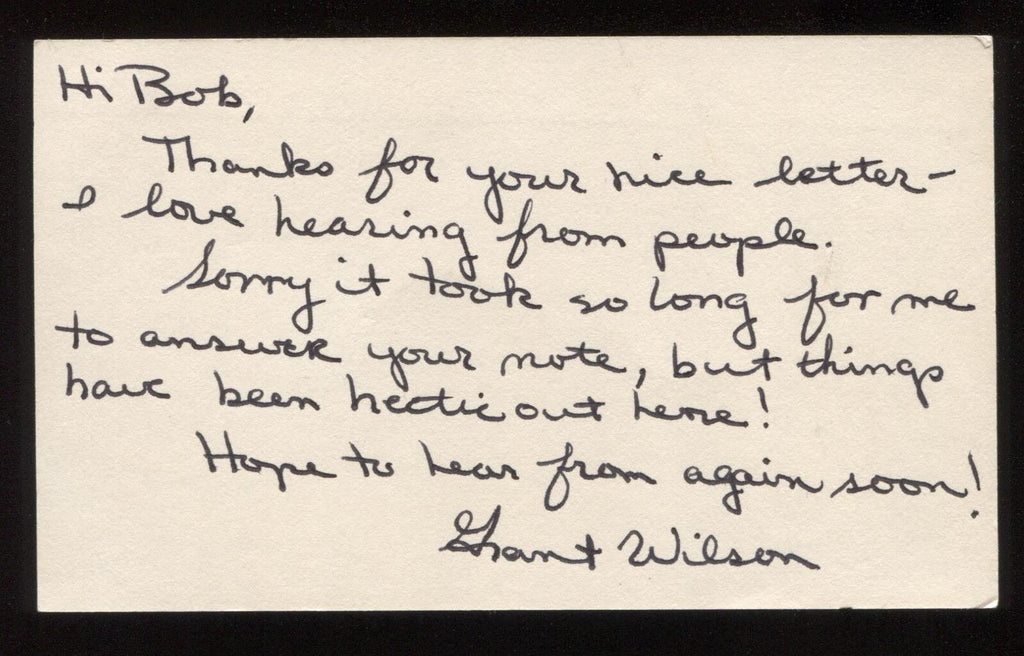 Hi Bob,
Thanks for your nice letter-
I love hearing from people.
Sorry it took so long for me
to answer your note, but things
have been hectic out here!
Hope to hear from again soon!
Grant Wilson